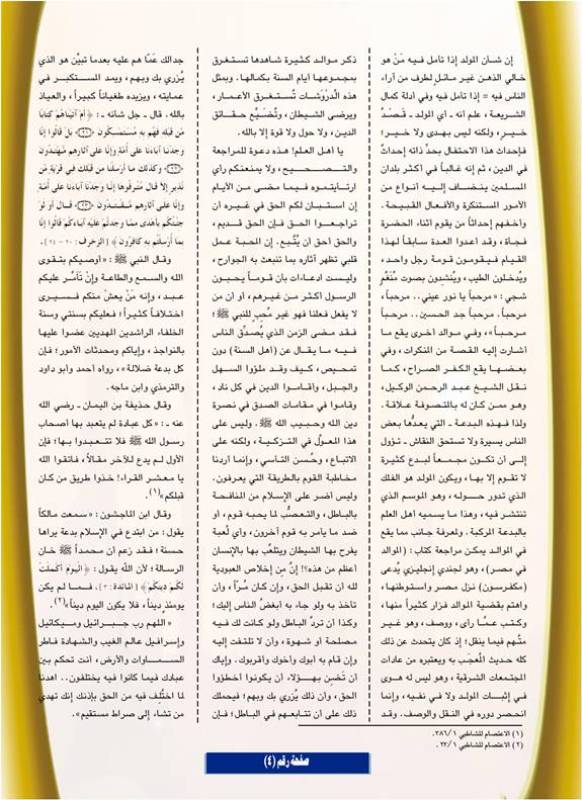 إن شأن المولد إذا تأمل فيه مَنْ هو
خالي الذهن غير مائل لطرف من آراء
الناس فيه = إذا تأمل فيه وفي أدلة كمال
الشريعة، علم أنه - أي المولد - قَصْدُ
خير، ولكنه ليس بهدى ولا خير؛
فإحداث هذا الاحتفال بحدِّ ذاته إحداثٌ
في الدين، ثم إنه غالباً في أكثر بلدان
المسلمين ينضاف إليه أنواع من
الأمور المستنكرة والأفعال القبيحة.
وأخفهم إحداثاً من يقوم أثناء الحضرة
فجأة، وقد أعدوا العدة سابقاً لهذا
القيام فيقومون قومة رجل واحد،
ويُدخلون الطيب، ويُنشدون بصوت مُنَغَّم
شجي: «مرحباً يا نور عيني.. مرحباً،
مرحباً.. مرحباً جد الحسين.. مرحباً
مرحباً»، وفي موالد أخرى يقع ما
أشارت إليه القصة من المنكرات، وفي
بعضها يقع الكفر الصراح، كما
نقل الشيخ عبد الرحمن الوكيل،
وهو ممن كان له بالمتصوفة علاقة.
ولذا فهذه البدعة - التي يعدُّها بعض
الناس يسيرة ولا تستحق النقاش - تزول
إلى أن تكون مجمعاً لبدع كثيرة
لا تقوم إلا بها، ويكون المولد هو الفلك
الذي تدور حوله، وهو الموسم الذي
تنتشر فيه، وهذا ما يسميه أهل العلم
بالبدعة المركبة. ولمعرفة جانب مما يقع
في الموالد يمكن مراجعة كتاب: (الموالد
في مصر)، وهو لجندي إنجليزي يُدعى
(مكفرسون) نزل مصر واستوطنها،
واهتم بقضية الموالد فزار كثيراً منها،
وكتب عمّا رأى، ووصف، وهو غير
متَّهم فيما ينقل؛ إذ كان يتحدث عن ذلك
كله حديث المُعجَب به ويعتبره من عادات
المجتمعات الشرقية، وهو ليس له هوى
في إثبات المولد ولا في نفيه، وإنما
انحصر دوره في النقل والوصف. وقد
ذكر موالد كثيرة شاهدها تستغرق
بمجموعها أيام السنة بكمالها. وبمثل
هذه الدَّرْوَشات تُستغرق الأعمار،
ويرضى الشيطان، وتُضَيَّع حقائق
الدين، ولا حول ولا قوة إلا بالله.
يا أهل العلم! هذه دعوة للمراجعة
والتصحيح، ولا يمنعنكم رأي
ارتأيتموه فيما مضى من الأيام
إن استبان لكم الحق في غيره أن
تراجعوا الحق فإن الحق قديم،
والحق أحق أن يُتَّبع. إن المحبة عمل
قلبي تظهر آثاره بما تنبعث به الجوارح،
وليست ادعاءات بأن قوماً يحبون
الرسول أكثر من غيرهم، أو أن من
لا يفعل فعلنا فهو غير مُحِب للنبي ﷺ؛
فقد مضى الزمن الذي يُصدِّق الناس
فيه ما يقال عن (أهل السنة) دون
تمحيص، كيف وقد ملؤوا السهل
والجبل، وأقاموا الدين في كل ناد،
وقاموا في مقامات الصدق في نصرة
دين الله وحبيب الله ﷺ. وليس على
هذا المعوَّل في التزكية، ولكنه على
الاتباع، وحُسن التأسي، وإنما أردنا
مخاطبة القوم بالطريقة التي يعرفون.
وليس أضر على الإسلام من المنافحة
بالباطل، والتعصُّب لما يحبه قوم، أو
ضد ما يأمر به قوم آخرين، وأي لُعبة
يفرح بها الشيطان ويتلعَّب بها بالإنسان
أعظم من هذه؟! إنَّ مِن إخلاص العبودية
لله أن تقبل الحق، وإن كان مُرّاً، وأن
تأخذ به ولو جاء به أبغضُ الناس إليك؛
وكذا أن تردَّ الباطل ولو كانت لك فيه
مصلحة أو شهوة، وأن لا تلتفت إليه
وإن قام به أبوك وأخوك وأقربوك. وإياك
أن تَضِنَّ بهؤلاء أن يكونوا أخطؤوا
الحق، وأن ذلك يُزري بك وبهم؛ فيحملك
ذلك على أن تتابعهم في الباطل؛ فإن
جدالك عَمَّا هم عليه بعدما تبيَّن هو الذي
يُزري بك وبهم، ويمد المستكبر في
عمايته، ويزيده طغياناً كبيراً، والعياذ
بالله. قال - جل شأنه -: ﴿أَمْ آتَيْنَاهُمْ كِتَابًا
مِّن قَبْلِهِ فَهُم بِهِ مُسْتَمْسِكُونَ ﴿٢١﴾ بَلْ قَالُوا إِنَّا
وَجَدْنَا آبَاءَنَا عَلَى أُمَّةٍ وَإِنَّا عَلَى آثَارِهِم مُّهْتَدُونَ
﴿٢٢﴾ وَكَذَلِكَ مَا أَرْسَلْنَا مِن قَبْلِكَ فِي قَرْيَةٍ مِّن
نَّذِيرٍ إِلَّا قَالَ مُتْرَفُوهَا إِنَّا وَجَدْنَا آبَاءَنَا عَلَى أُمَّةٍ
وَإِنَّا عَلَى آثَارِهِم مُّقْتَدُونَ ﴿٢٣﴾ قَالَ أَوَ لَوْ
جِئْتُكُم بِأَهْدَى مِمَّا وَجَدتُّمْ عَلَيْهِ آبَاءَكُمْ قَالُوا إِنَّا
بِمَا أُرْسِلْتُم بِهِ كَافِرُونَ﴾ [الزخرف: ٢٠ - ٢٤].
وقال النبي ﷺ: «أوصيكم بتقوى
الله والسمع والطاعة وإنْ تأمَّر عليكم
عبد، وإنه مَنْ يعشْ منكم فسيرى
اختلافاً كثيراً؛ فعليكم بسنتي وسنة
الخلفاء الراشدين المهديين عضوا عليها
بالنواجذ، وإياكم ومحدثات الأمور؛ فإن
كل بدعة ضلالة»، رواه أحمد وأبو داود
والترمذي وابن ماجه.
وقال حذيفة بن اليمان - رضي الله
عنه -: «كل عبادة لم يتعبد بها أصحاب
رسول الله ﷺ فلا تتعبدوا بها؛ فإن
الأول لم يدع للآخر مقالاً، فاتقوا الله
يا معشر القراء! خذوا طريق من كان
قبلكم»(١).
وقال ابن الماجشون: «سمعت مالكاً
يقول: من ابتدع في الإسلام بدعة يراها
حسنة؛ فقد زعم أن محمداً ﷺ خان
الرسالة؛ لأن الله يقول: ﴿الْيَوْمَ أَكْمَلْتُ
لَكُمْ دِينَكُمْ﴾ [المائدة: ٣]، فما لم يكن
يومئذ ديناً، فلا يكون اليوم ديناً»(٢).
«اللهم رب جبرائيل وميكائيل
وإسرافيل عالم الغيب والشهادة فاطر
السماوات والأرض، أنت تحكم بين
عبادك فيما كانوا فيه يختلفون.. اهدنا
لما اختُلِف فيه من الحق بإذنك إنك تهدي
من تشاء إلى صراط مستقيم».
(١) الاعتصام للشاطبي ٢٨٦/١.
(٢) الاعتصام للشاطبي ٦٢/١.
صفحة رقم (٤)